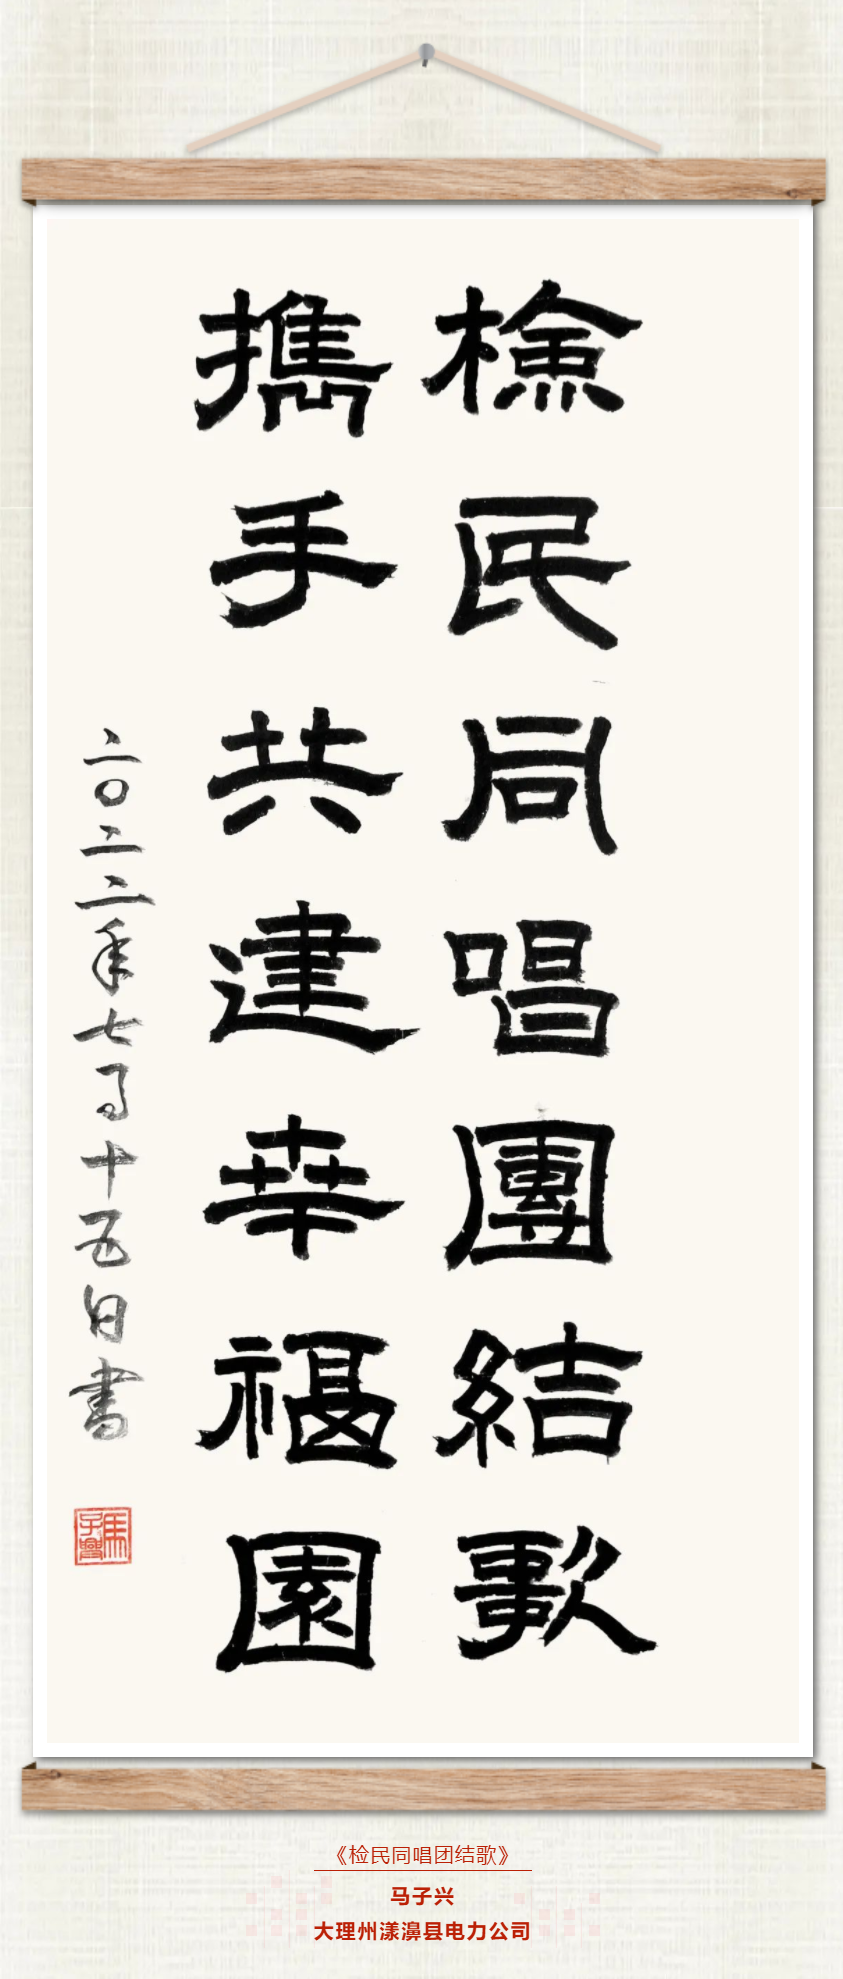 檢民同唱團結歌
攜手共建幸福園
二〇二二年七月十五日書
馬子興
《检民同唱团结歌》
马子兴
大理州漾濞县电力公司